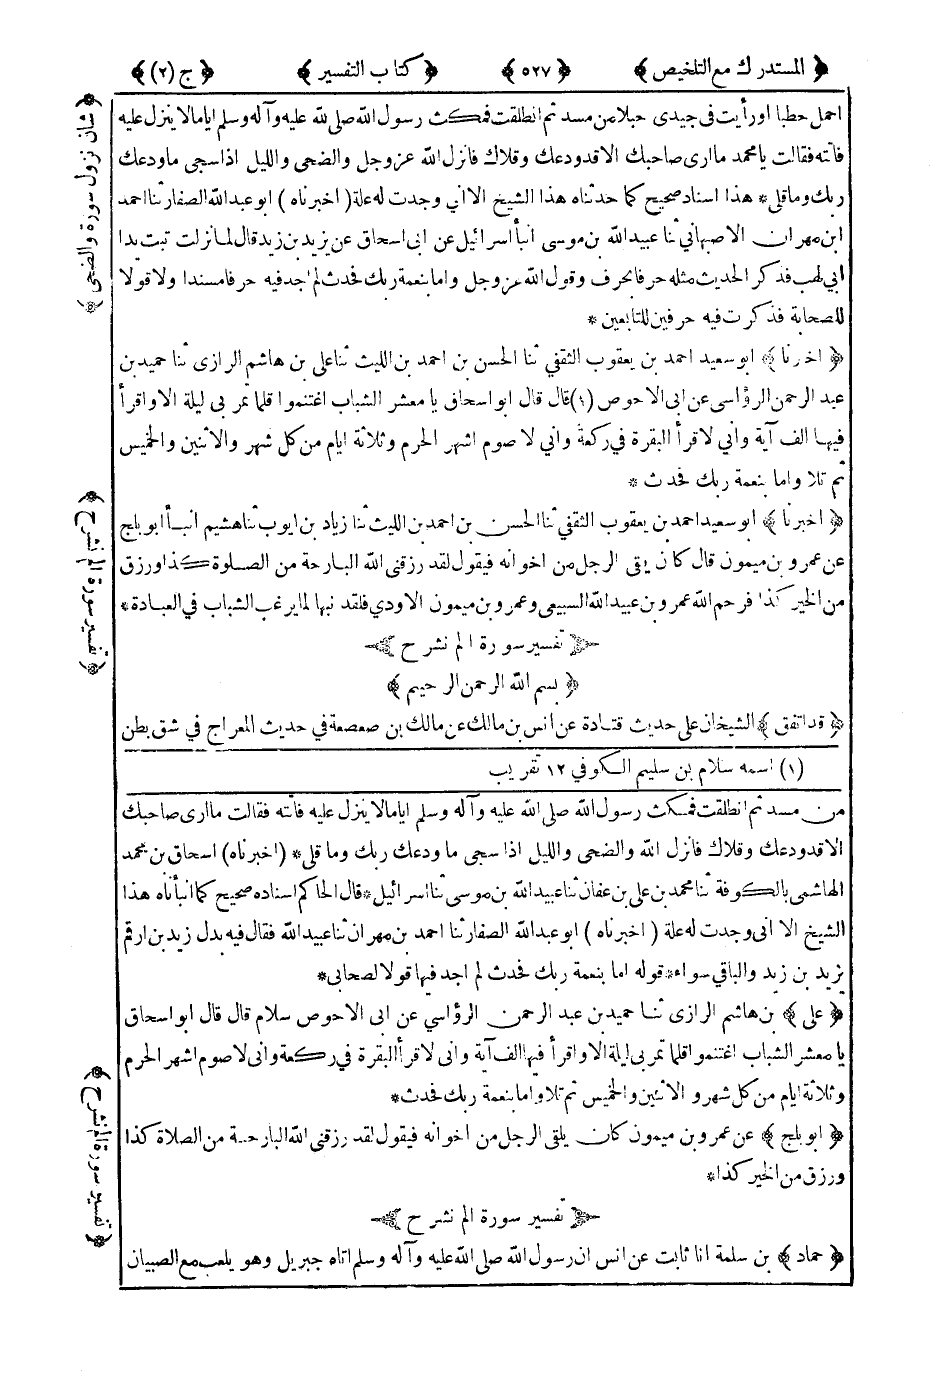 ﴿ المستدرك مع التلخيص ﴾ ﴿ ٥٢٧ ﴾ ﴿ كتاب التفسير ﴾ ﴿ ج (٢) ﴾
احمل حطبا اورأيت في جيدى حبلا من مسد ثم انطلقت فمكث رسول الله صلى لله عليه وآله وسلم اياما لا ينزل عليه
فاتته فقالت يا محمد ماارى صاحبك الا قد ودعك وقلاك فانزل الله عز وجل والضحى والليل اذا سجى ما ودعك
ربك وما قلى * هذا اسناد صحيح كما حدثناه هذا الشيخ الا اني وجدت له علة ( اخبرناه ) ابو عبد الله الصفار ثنا احمد
ابن مهران الاصبهاني ثنا عبيد الله بن موسى انبأ اسرائيل عن ابى اسحاق عن يزيد بن زيد قال لما نزلت تبت يدا
ابي لهب فذكر الحديث مثله حرفا بحرف وقول الله عز وجل واما بنعمة ربك فحدث لم اجد فيه حرفا مسندا ولا قولا
للصحابة فذكرت فيه حرفين للتابعين *
﴿ اخبرنا ﴾ ابو سعيد احمد بن يعقوب الثقفي ثنا الحسن بن احمد بن الليث ثنا على بن هاشم الرازى ثنا حميد بن
عبد الرحمن الرؤاسى عن ابى الاحوص (١) قال قال ابو اسحاق يا معشر الشباب اغتنموا قلما تمر بى ليلة الا واقرأ
فيها الف آية واني لاقرأ البقرة في ركعة واني لاصوم اشهر الحرم وثلاثة ايام من كل شهر والاثنين والخميس
ثم تلا واما بنعمة ربك فحدث *
﴿ اخبرنا ﴾ ابو سعيد احمد بن يعقوب الثقفي ثنا الحسن بن احمد بن الليث ثنا زياد بن ايوب ثنا هشيم انبأ ابو بلج
عن عمرو بن ميمون قال كان يلقى الرجل من اخوانه فيقول لقد رزقنى الله البارحة من الصلوة كذا ورزق
من الخير كذا فرحم الله عمرو بن عبيد الله السبيعى وعمرو بن ميمون الاودي فلقد نبها لما يرغب الشباب في العبادة *
﴿ تفسير سورة الم نشرح ﴾
﴿ بسم الله الرحمن الرحيم ﴾
﴿ قد اتفق ﴾ الشيخان على حديث قتادة عن انس بن مالك عن مالك بن صعصعة في حديث المعراج في شق بطن
(١) اسمه سلام بن سليم الكوفي ١٢ تقريب
من مسد ثم انطلقت فمكث رسول الله صلى الله عليه وآله وسلم اياما لا ينزل عليه فاتته فقالت ماارى صاحبك
الا قد ودعك وقلاك فانزل الله والضحى والليل اذا سجى ما ودعك ربك وما قلى * (اخبرناه) اسحاق بن محمد
الهاشمى بالكوفة ثنا محمد بن على بن عفان ثنا عبيد الله بن موسى ثنا اسرائيل * قال الحاكم اسناده صحيح كما انبأناه هذا
الشيخ الا انى وجدت له علة ( اخبرناه ) ابو عبد الله الصفار ثنا احمد بن مهران ثنا عبيد الله فقال فيه بدل زيد بن ارقم
يزيد بن زيد والباقي سواء * قوله اما بنعمة ربك فحدث لم اجد فيها قولا لصحابى *
﴿ على ﴾ بن هاشم الرازى ثنا حميد بن عبد الرحمن الرؤاسي عن ابى الاحوص سلام قال قال ابو اسحاق
يا معشر الشباب اغتنموا قلما تمر بى ليلة الا واقرأ فيها الف آية وانى لاقرأ البقرة في ركعة وانى لاصوم اشهر الحرم
وثلاثة ايام من كل شهر و الاثنين والخميس ثم تلا واما بنعمة ربك فحدث *
﴿ ابو بلج ﴾ عن عمرو بن ميمون كان يلقى الرجل من اخوانه فيقول لقد رزقنى الله البارحة من الصلاة كذا
ورزق من الخير كذا *
﴿ تفسير سورة الم نشرح ﴾
﴿ حماد ﴾ بن سلمة انا ثابت عن انس ان رسول الله صلى الله عليه وآله وسلم اتاه جبريل وهو يلعب مع الصبيان
﴿ شان نزول سورة والضحى ﴾
﴿ تفسير سورة الم نشرح ﴾
﴿ تفسير سورة الم نشرح ﴾